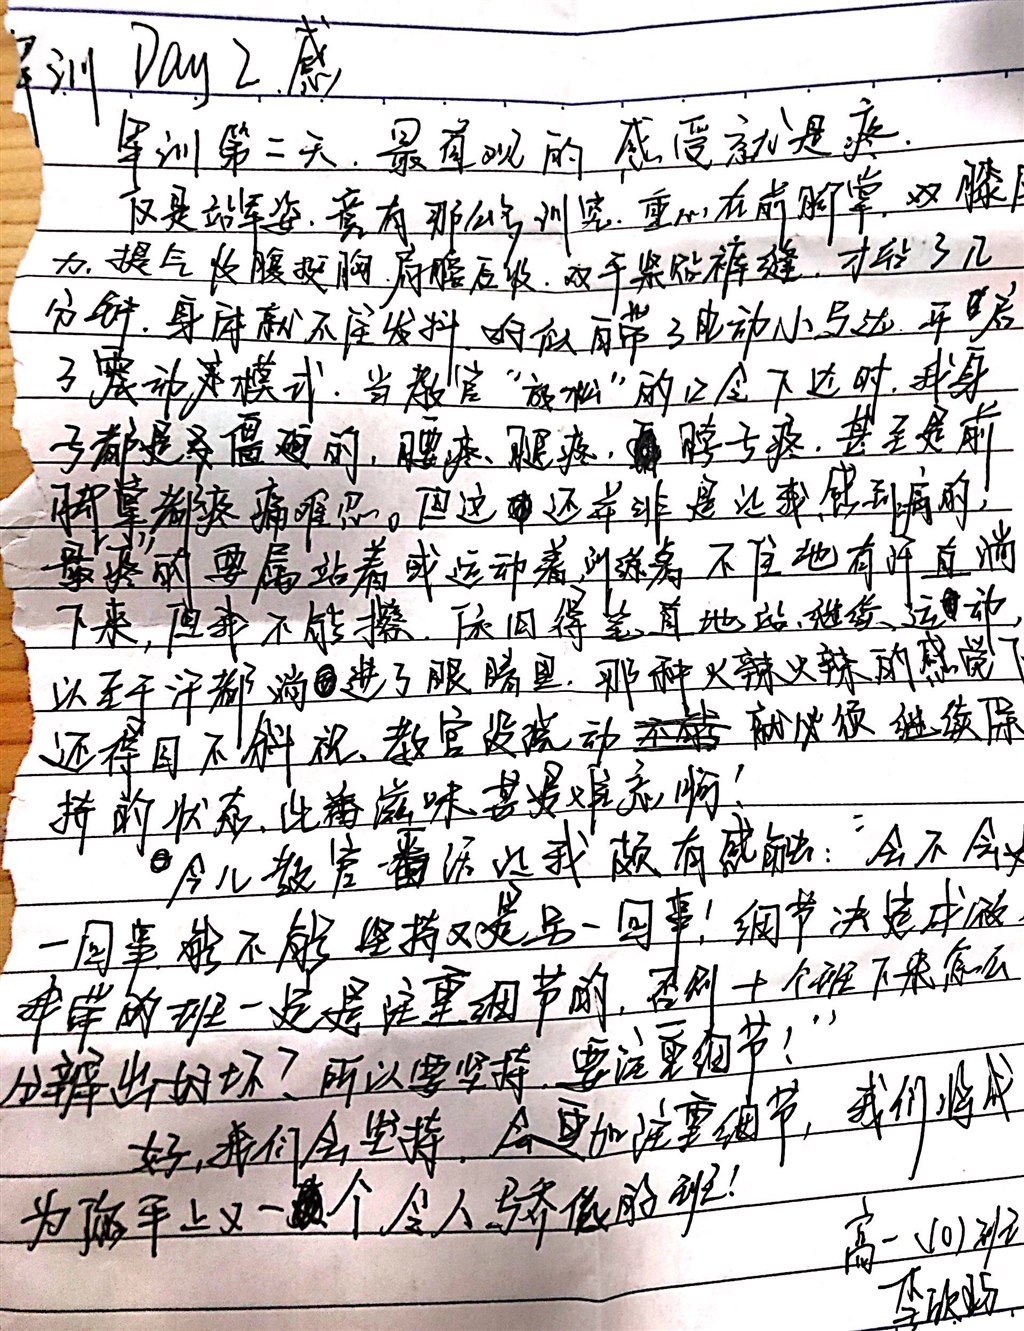 军训 Day 2 感
军训第二天，最直观的感受就是疼.
仅是站军姿，竟有那么多讲究.重心在前脚掌，双膝
力，提气收腹挺胸，肩膀后收，双手紧贴裤缝，才站了几
分钟，身体就不住发抖，好似自带了电动小马达，开启
了震动模式.当教官“放松”的口令下达时，我身
子都是僵硬的，腰疼、腿疼，脖子疼，甚至是前
脚掌都疼痛难忍。但这还并非是让我感到痛的，
最“疼”的要属站着或运动着训练着不住地有汗直淌
下来，但我不能擦，依旧得笔直地站、继续运动，
以至于汗都淌进了眼睛里，那种火辣火辣的感觉下
还得目不斜视、教官没说动就必须继续保
持前状态，此番滋味甚是难忘啊！
今儿教官一番话让我颇有感触：“会不会是
一回事，能不能坚持又是另一回事！细节决定成败，
优秀的班一定是注重细节的，否则十个班下来怎么
分辨出好坏？所以要坚持，要注重细节！”
好，我们会坚持，会更加注重细节，我们将成
为 上又一个令人骄傲的班！
高一(10)班
李欣